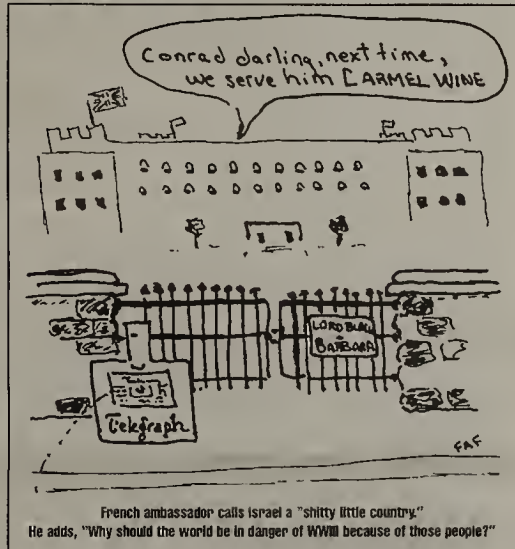 Conrad darling, next time,
we serve him CARMEL WINE
LORD BLACK
+
BARBARA
Telegraph
FAF
French ambassador calls Israel a "shitty little country."
He adds, "Why should the world be in danger of WWIII because of those people?"